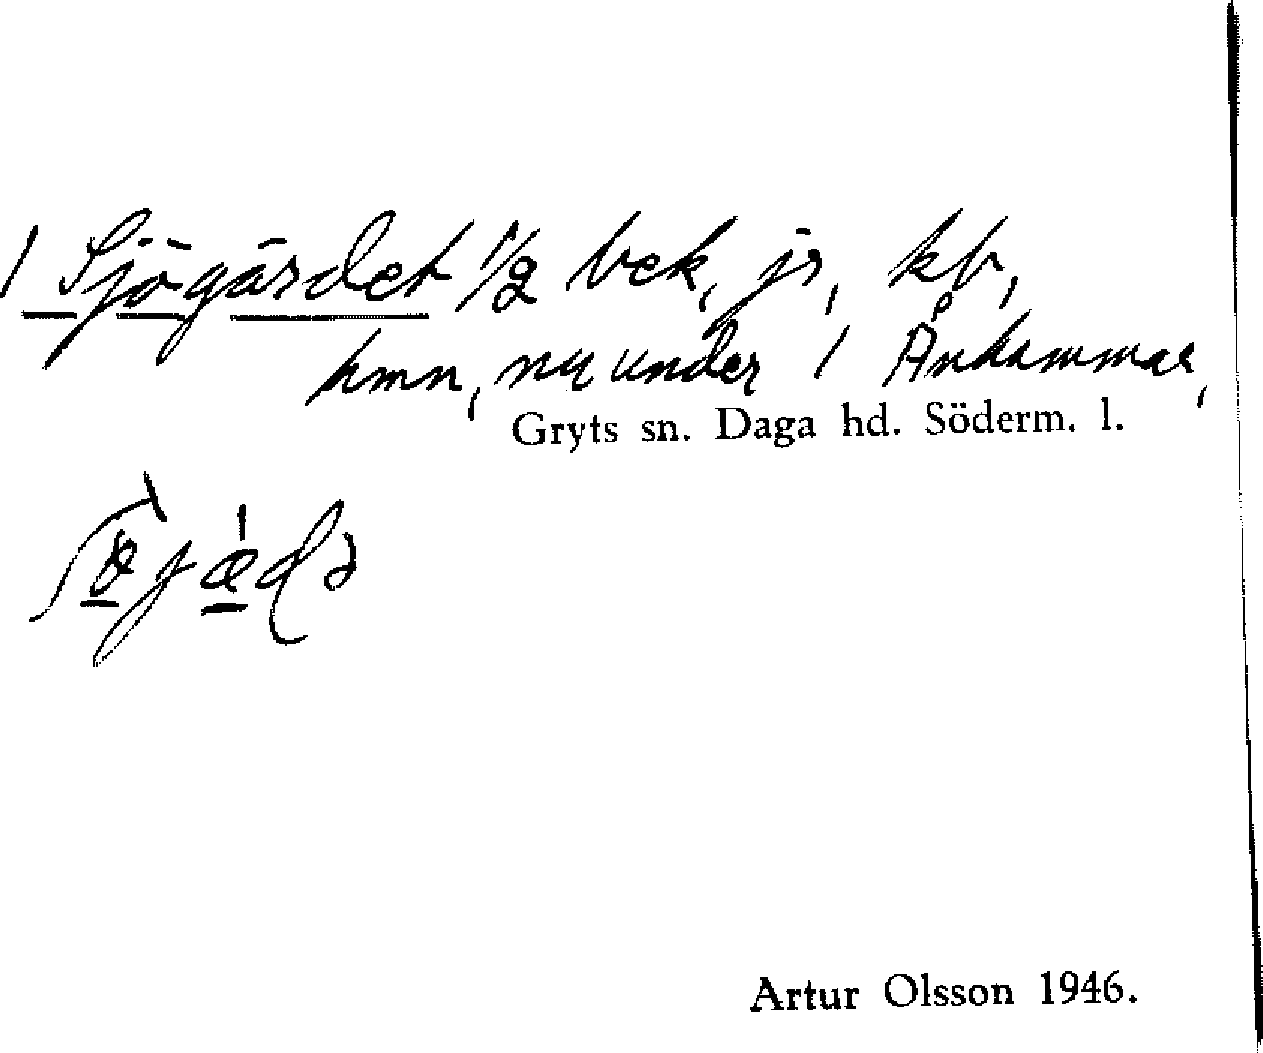 1 Sjögärdet 1/2 bek, jr, kb,
hmn, nu under 1 Ånhammar,
Gryts sn. Daga hd. Söderm. l.
Artur Olsson 1946.